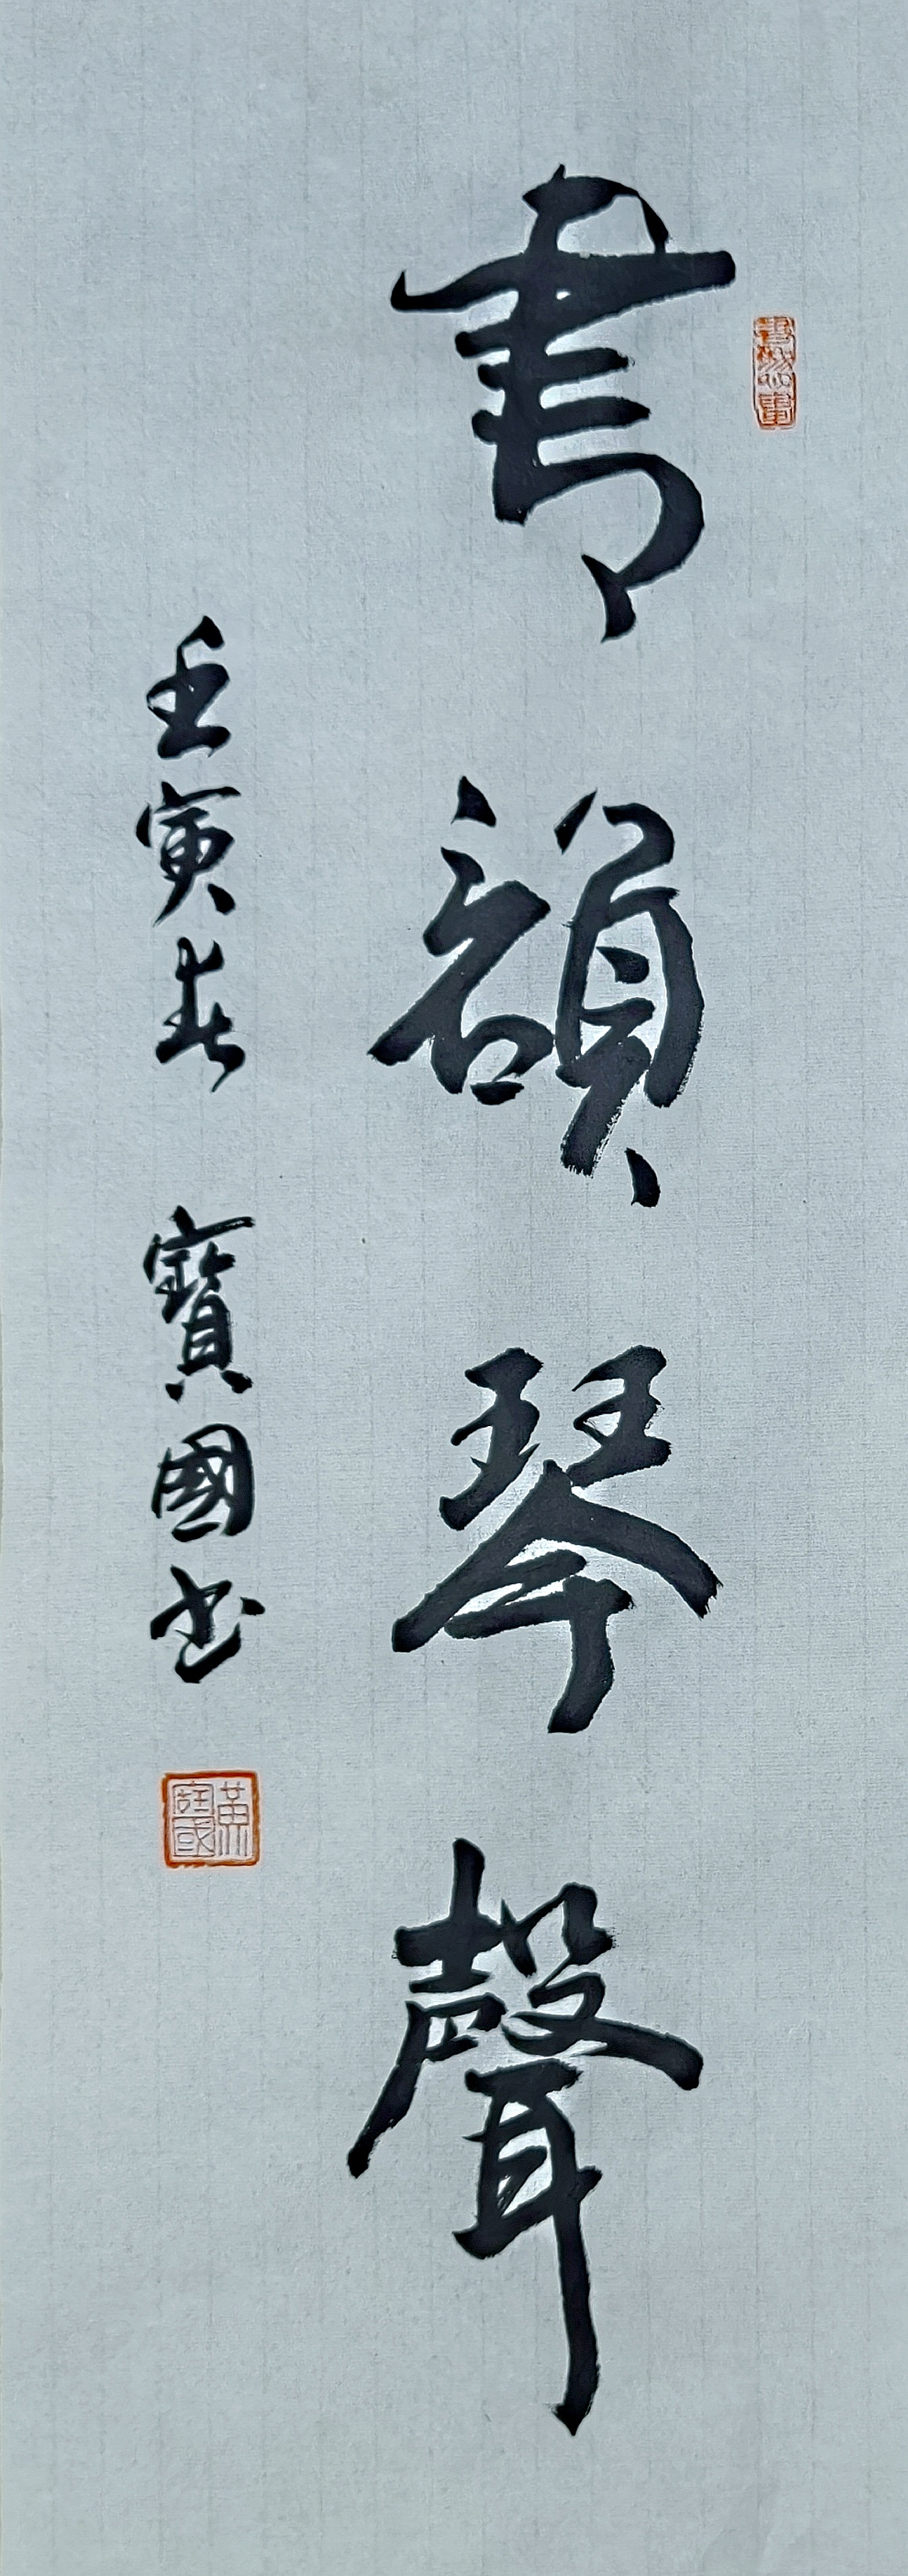 書韻琴聲
壬寅春 寶國書
黃寶國